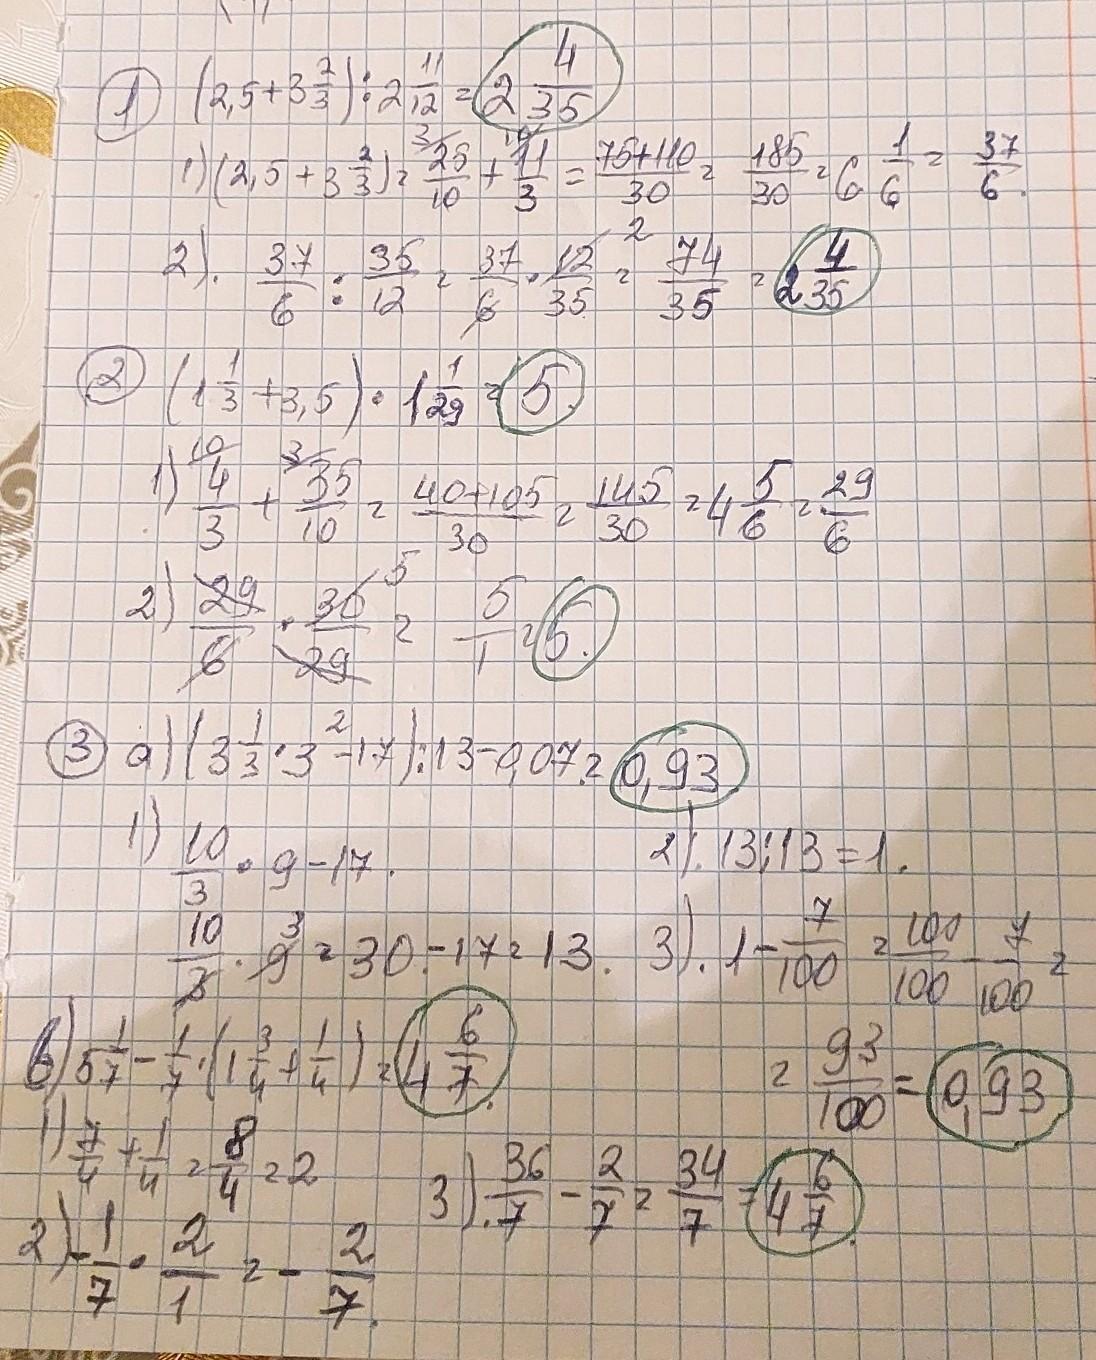 1 (2,5+3 2/3):2 11/12 = 2 4/35
1) (2,5+3 2/3) = 25/10 + 11/3 = 75+110/30 = 185/30 = 6 1/6 = 37/6.
2). 37/6 : 35/12 = 37/6 · 12/35 = 74/35 = 2 4/35
2 (1 1/3 + 3,5) · 1 1/29 = 5.
1) 4/3 + 35/10 = 40+105/30 = 145/30 = 4 5/6 = 29/6
2) 29/6 · 30/29 = 5/1 = 5.
3 а) (3 1/3 · 3² - 17):13-0,07 = 0,93
1) 10/3 · 9-17.
2). 13:13 = 1.
10/3 · 9 = 30.-17 = 13.
3). 1 - 7/100 = 100/100 - 7/100 =
= 93/100 = 0,93
б) 5 1/7 - 1/7 · (1 3/4 + 1/4) = 4 6/7.
1) 7/4 + 1/4 = 8/4 = 2
2) -1/7 · 2/1 = - 2/7.
3). 36/7 - 2/7 = 34/7 = 4 6/7.